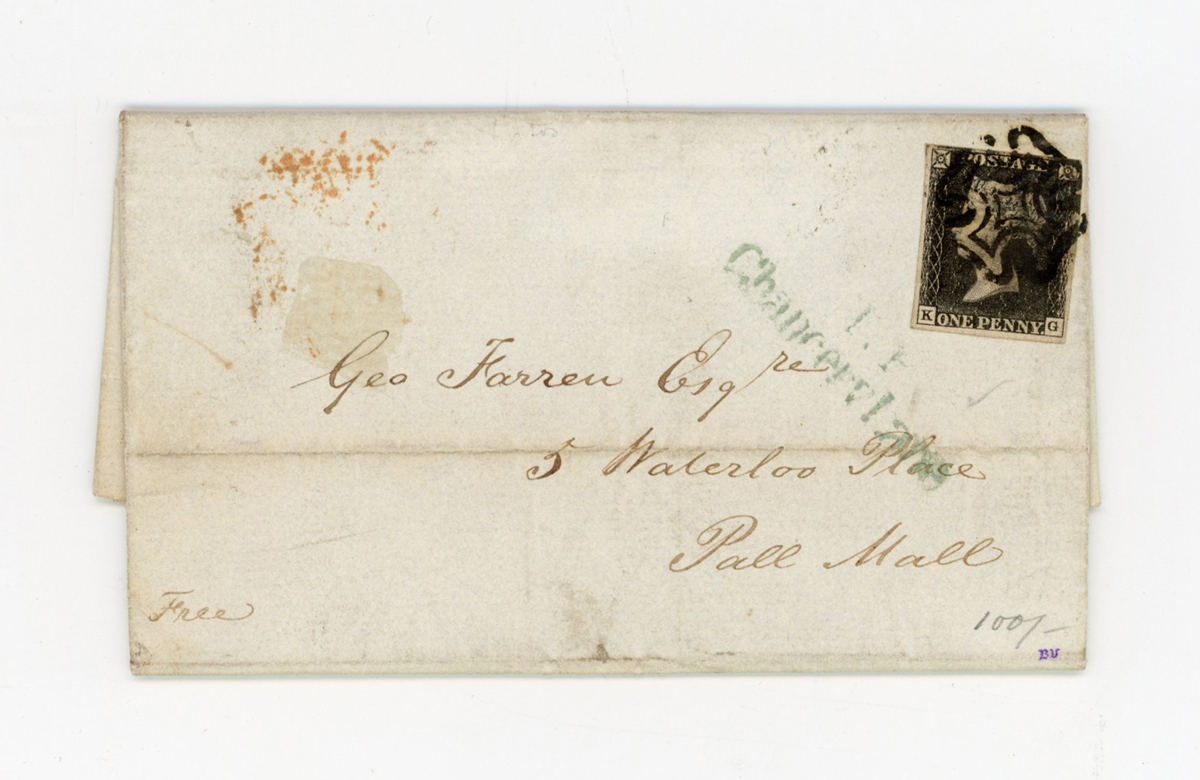 POSTAGE
K ONE PENNY. G
T.P
Chancery Lane
Geo Farren Esqre
5 Waterloo Place
Pall Mall
Free
100/-
BU